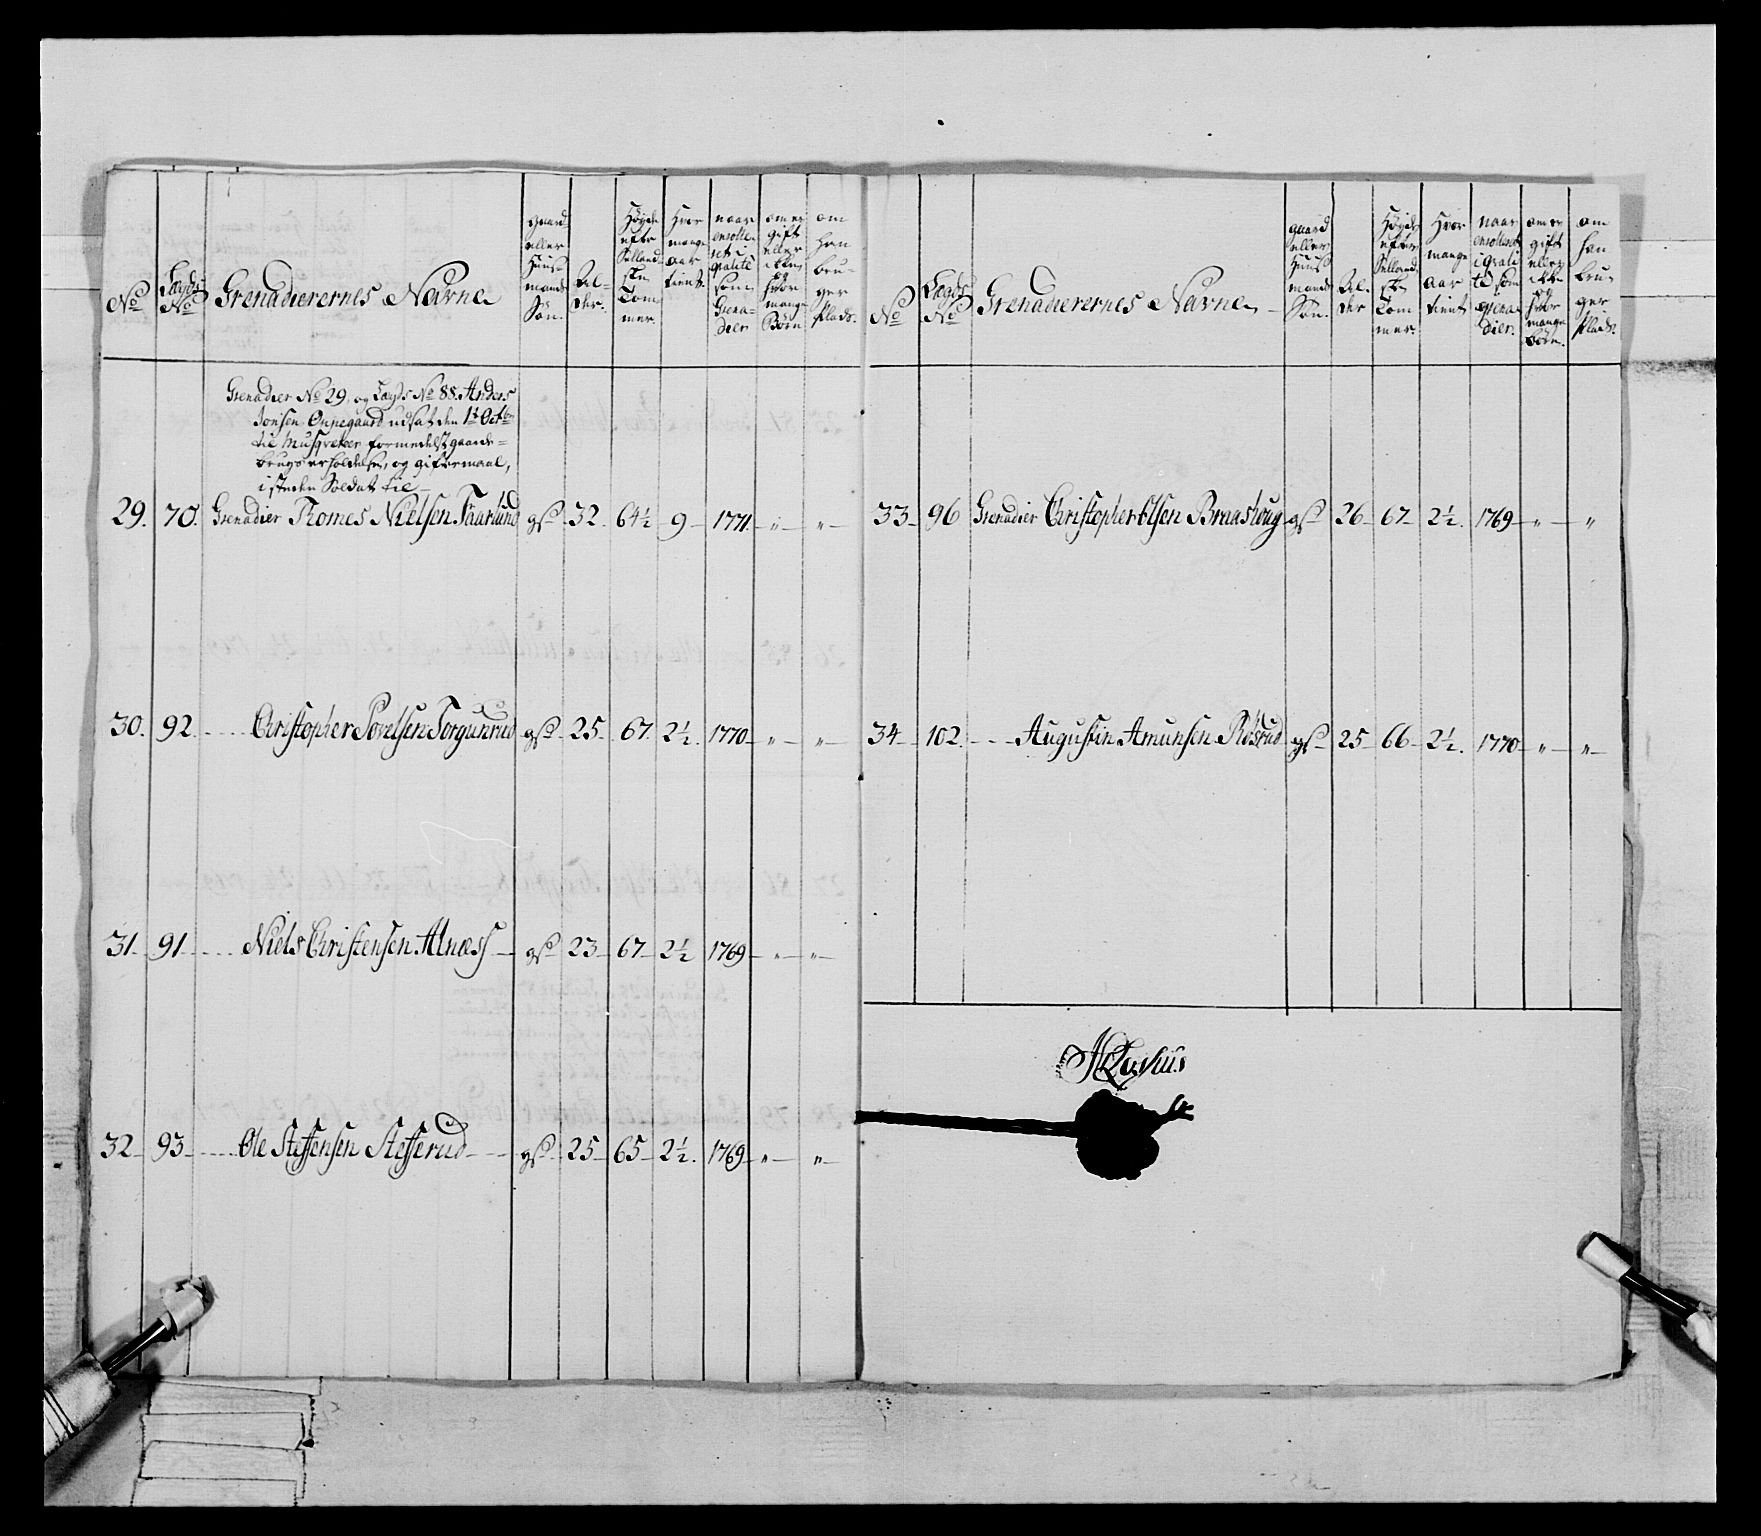 No
Lægds No
Grenadierernes Navne
gaard eller Huusmands Søn.
Alder.
Høyde efter Sellandske Tommer.
Hvor mange Aar tient.
naar enrollerets i qvalité som Grenadier
om er gift eller ikke og hvor mange Børn
om han bruger Plads.
Grenadier No 29, og Lægds No 88. Anders
Jonsen Onnegaard udsat den 1te Octbr
til Musqveteer formedelst gaards-
brugs erholdelse, og gifermaal,
i steden Soldat til
29. 70. Grenadier Thomes Nielsen Faarlund gS 32. 64½ 9 1771. " "
30. 92. Christopher Povelsen Torgunrud gS 25 67. 2½. 1770 " "
31 91 Niels Christensen Alnæss gS 23 67 2½ 1769 " "
32 93 Ole Steffensen Stefferud gS 25 65 2½. 1769 " "
No
Lægds No
Grenadierernes Navne
gaard eller Huusmands Søn.
Alder
Høyde efter Sellandske Tommer
Hvor mange Aar tient
naar enrolleret i qvalité som Grenadier.
om er gift eller ikke og hvor mange Børn.
om han bruger Plads.
33 96 Grenadier Christopher Olsen Braashoug gS 26 67 2½. 1769 " "
34 102. Augustin Amunsen Røsrud gS 25 66 2½. 1770 " "